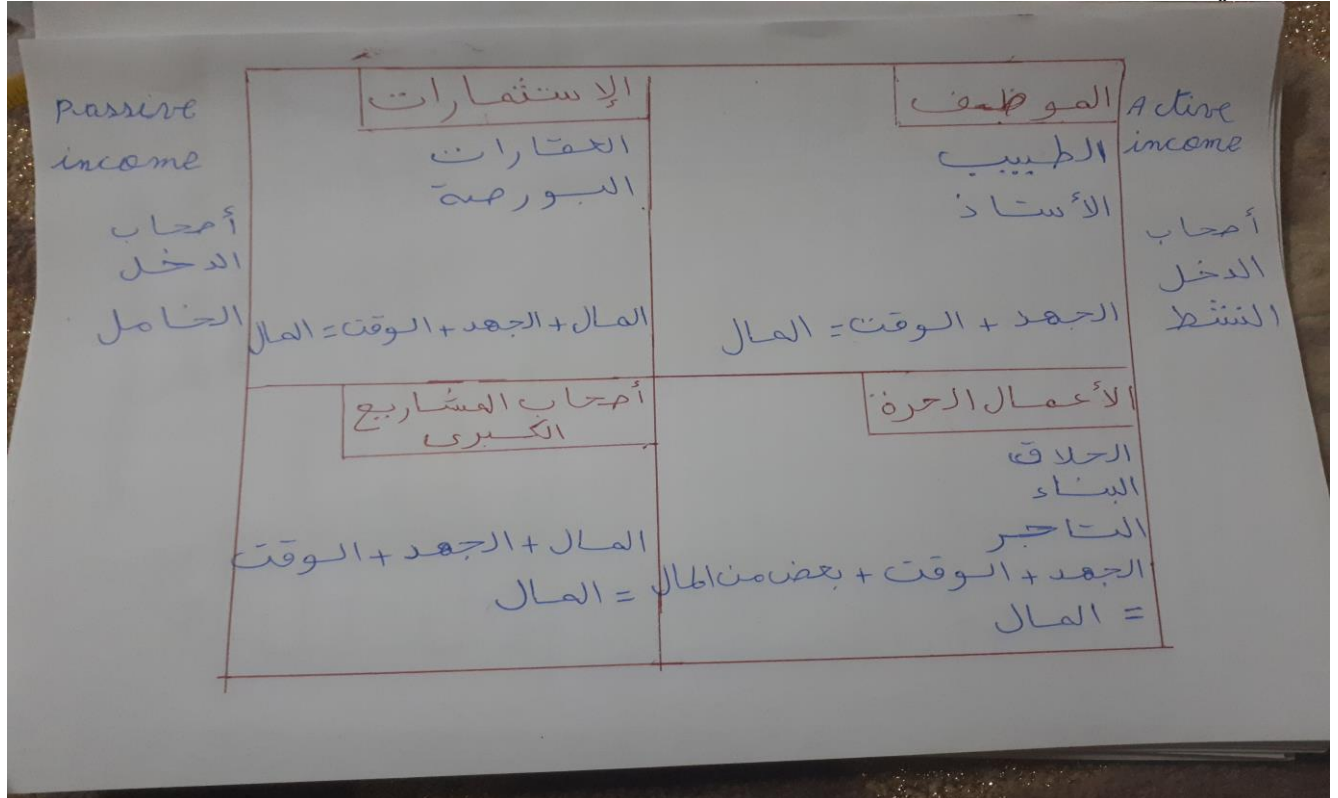 Active
income
أصحاب
الدخل
النشط
الموظف
الطبيب
الأستاذ
الجهد + الوقت = المال
الإستثمارات
العقارات
البورصة
المال + الجهد + الوقت = المال
passive
income
أصحاب
الدخل
الخامل
الأعمال الحرة
الحلاق
البناء
التاجر
الجهد + الوقت + بعض من المال
= المال
أصحاب المشاريع
الكبرى
المال + الجهد + الوقت
= المال